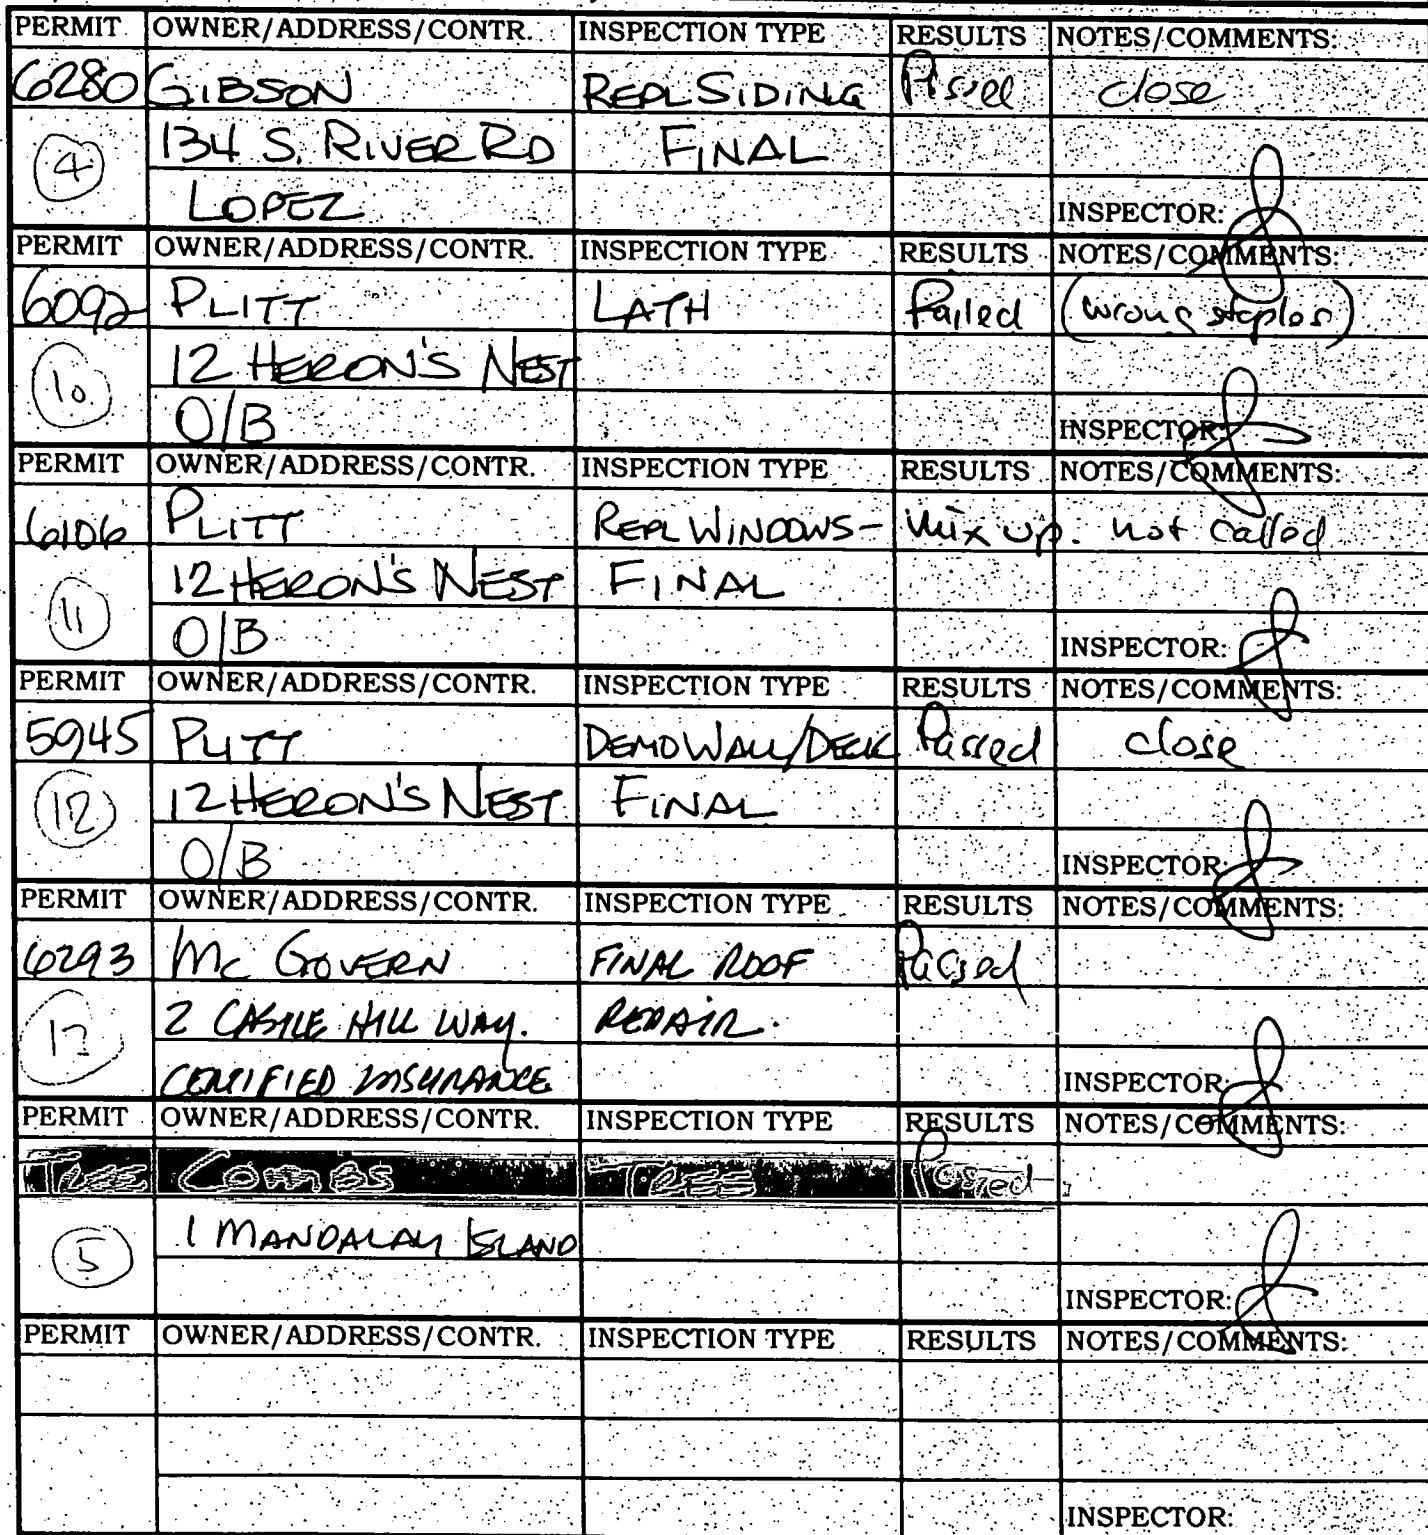 PERMIT OWNER/ADDRESS/CONTR. INSPECTION TYPE RESULTS NOTES/COMMENTS:
6280 GIBSON REPL SIDING Passed close
4 134 S. RIVER RD FINAL
LOPEZ INSPECTOR:
PERMIT OWNER/ADDRESS/CONTR. INSPECTION TYPE RESULTS NOTES/COMMENTS:
6092 PLITT LATH Failed (wrong staples)
10 12 HERON'S NEST
O/B INSPECTOR:
PERMIT OWNER/ADDRESS/CONTR. INSPECTION TYPE RESULTS NOTES/COMMENTS:
6106 PLITT REPL WINDOWS- Mix up. not called
11 12 HERON'S NEST FINAL
O/B INSPECTOR:
PERMIT OWNER/ADDRESS/CONTR. INSPECTION TYPE RESULTS NOTES/COMMENTS:
5945 PLITT DEMO WALL/DECK Passed close
12 12 HERON'S NEST FINAL
O/B INSPECTOR:
PERMIT OWNER/ADDRESS/CONTR. INSPECTION TYPE RESULTS NOTES/COMMENTS:
6293 Mc GOVERN FINAL ROOF Passed
2 CASTLE HILL WAY. REPAIR.
CERTIFIED INSURANCE INSPECTOR:
PERMIT OWNER/ADDRESS/CONTR. INSPECTION TYPE RESULTS NOTES/COMMENTS:
TREE COMBS TREE Passed
5 1 MANDALAY ISLAND
INSPECTOR:
PERMIT OWNER/ADDRESS/CONTR. INSPECTION TYPE RESULTS NOTES/COMMENTS:
INSPECTOR: